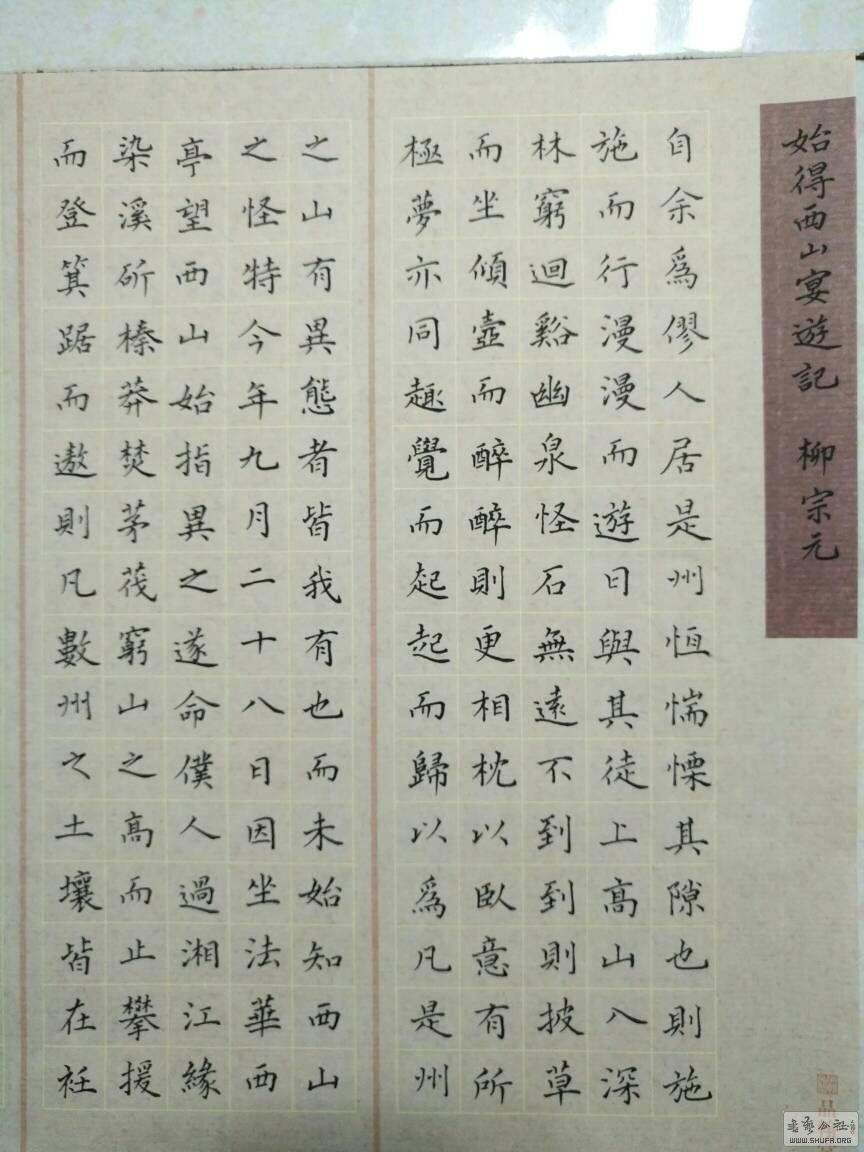 始得西山宴遊記 柳宗元
自余爲僇人居是州恒惴慄其隙也則施
施而行漫漫而遊日與其徒上高山入深
林窮迴谿幽泉怪石無遠不到到則披草
而坐傾壺而醉醉則更相枕以臥意有所
極夢亦同趣覺而起起而歸以爲凡是州
之山有異態者皆我有也而未始知西山
之怪特今年九月二十八日因坐法華西
亭望西山始指異之遂命僕人過湘江緣
染溪斫榛莽焚茅茷窮山之高而止攀援
而登箕踞而遨則凡數州之土壤皆在衽
書藝公社
WWW.SHUFA.ORG